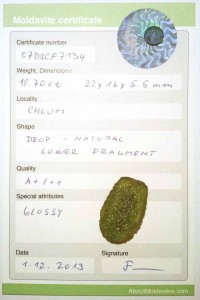 Moldavite certificate
Certificate number
07D3CF7134
Weight, Dimensions
18.70ct 22x16x5.5 mm
Locality
CHLUM
Shape
DROP - NATURAL
LOWER FRAGMENT
Quality
A+/++
Special attributes
GLOSSY
Date
Signature
1.12.2013
AboutMoldavites.com